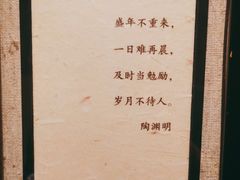 盛年不重来，
一日难再晨，
及时当勉励，
岁月不待人。
陶渊明